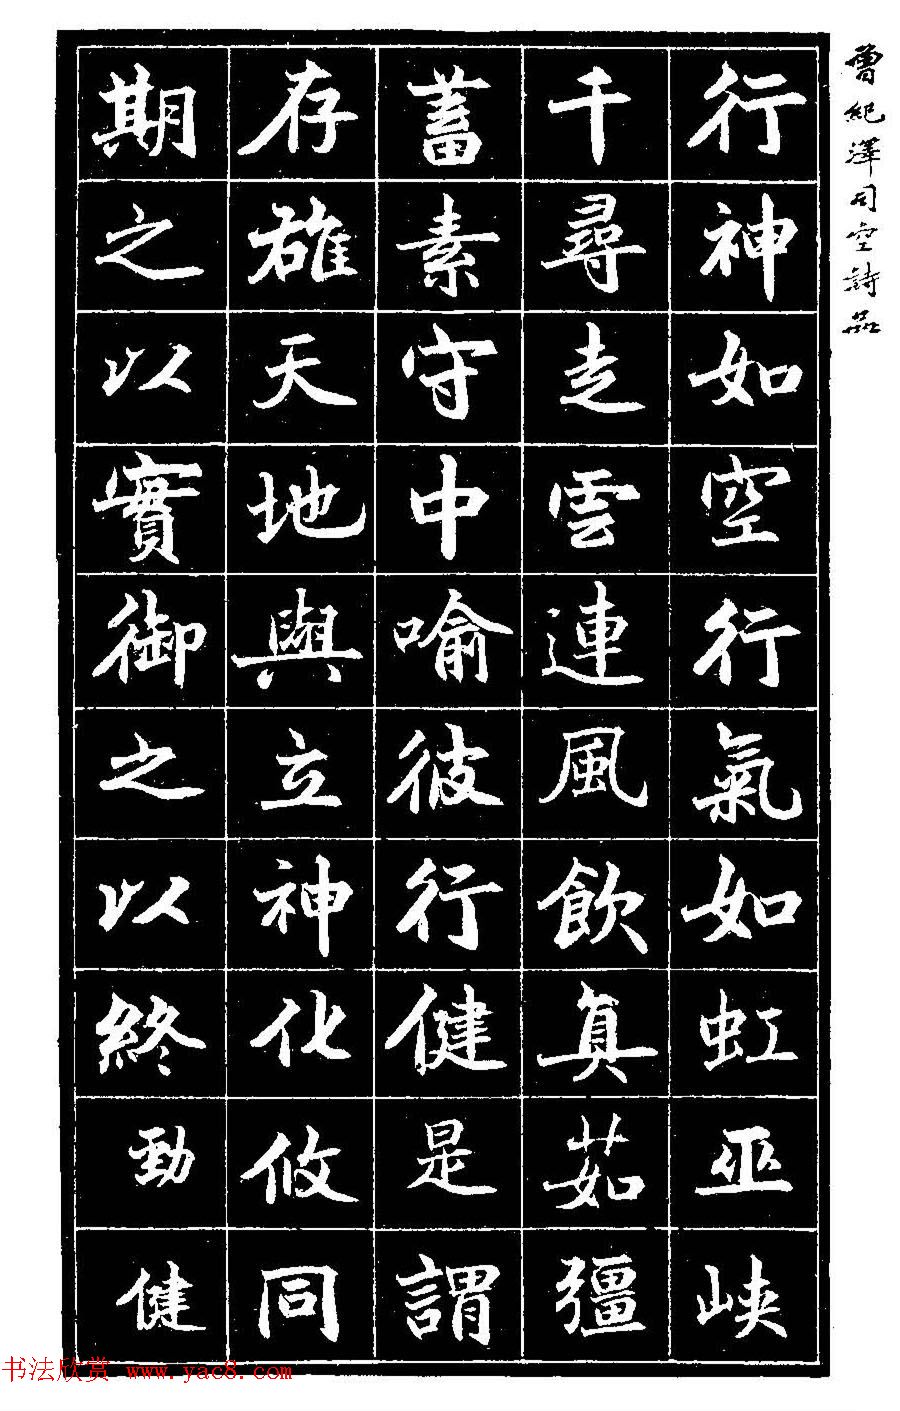 曾紀澤司空詩品
行神如空行氣如虹巫峽
千尋走雲連風飲真茹彊
蓄素守中喻彼行健是謂
存雄天地與立神化攸同
期之以實御之以終勁健
书法欣赏 www.yac8.com